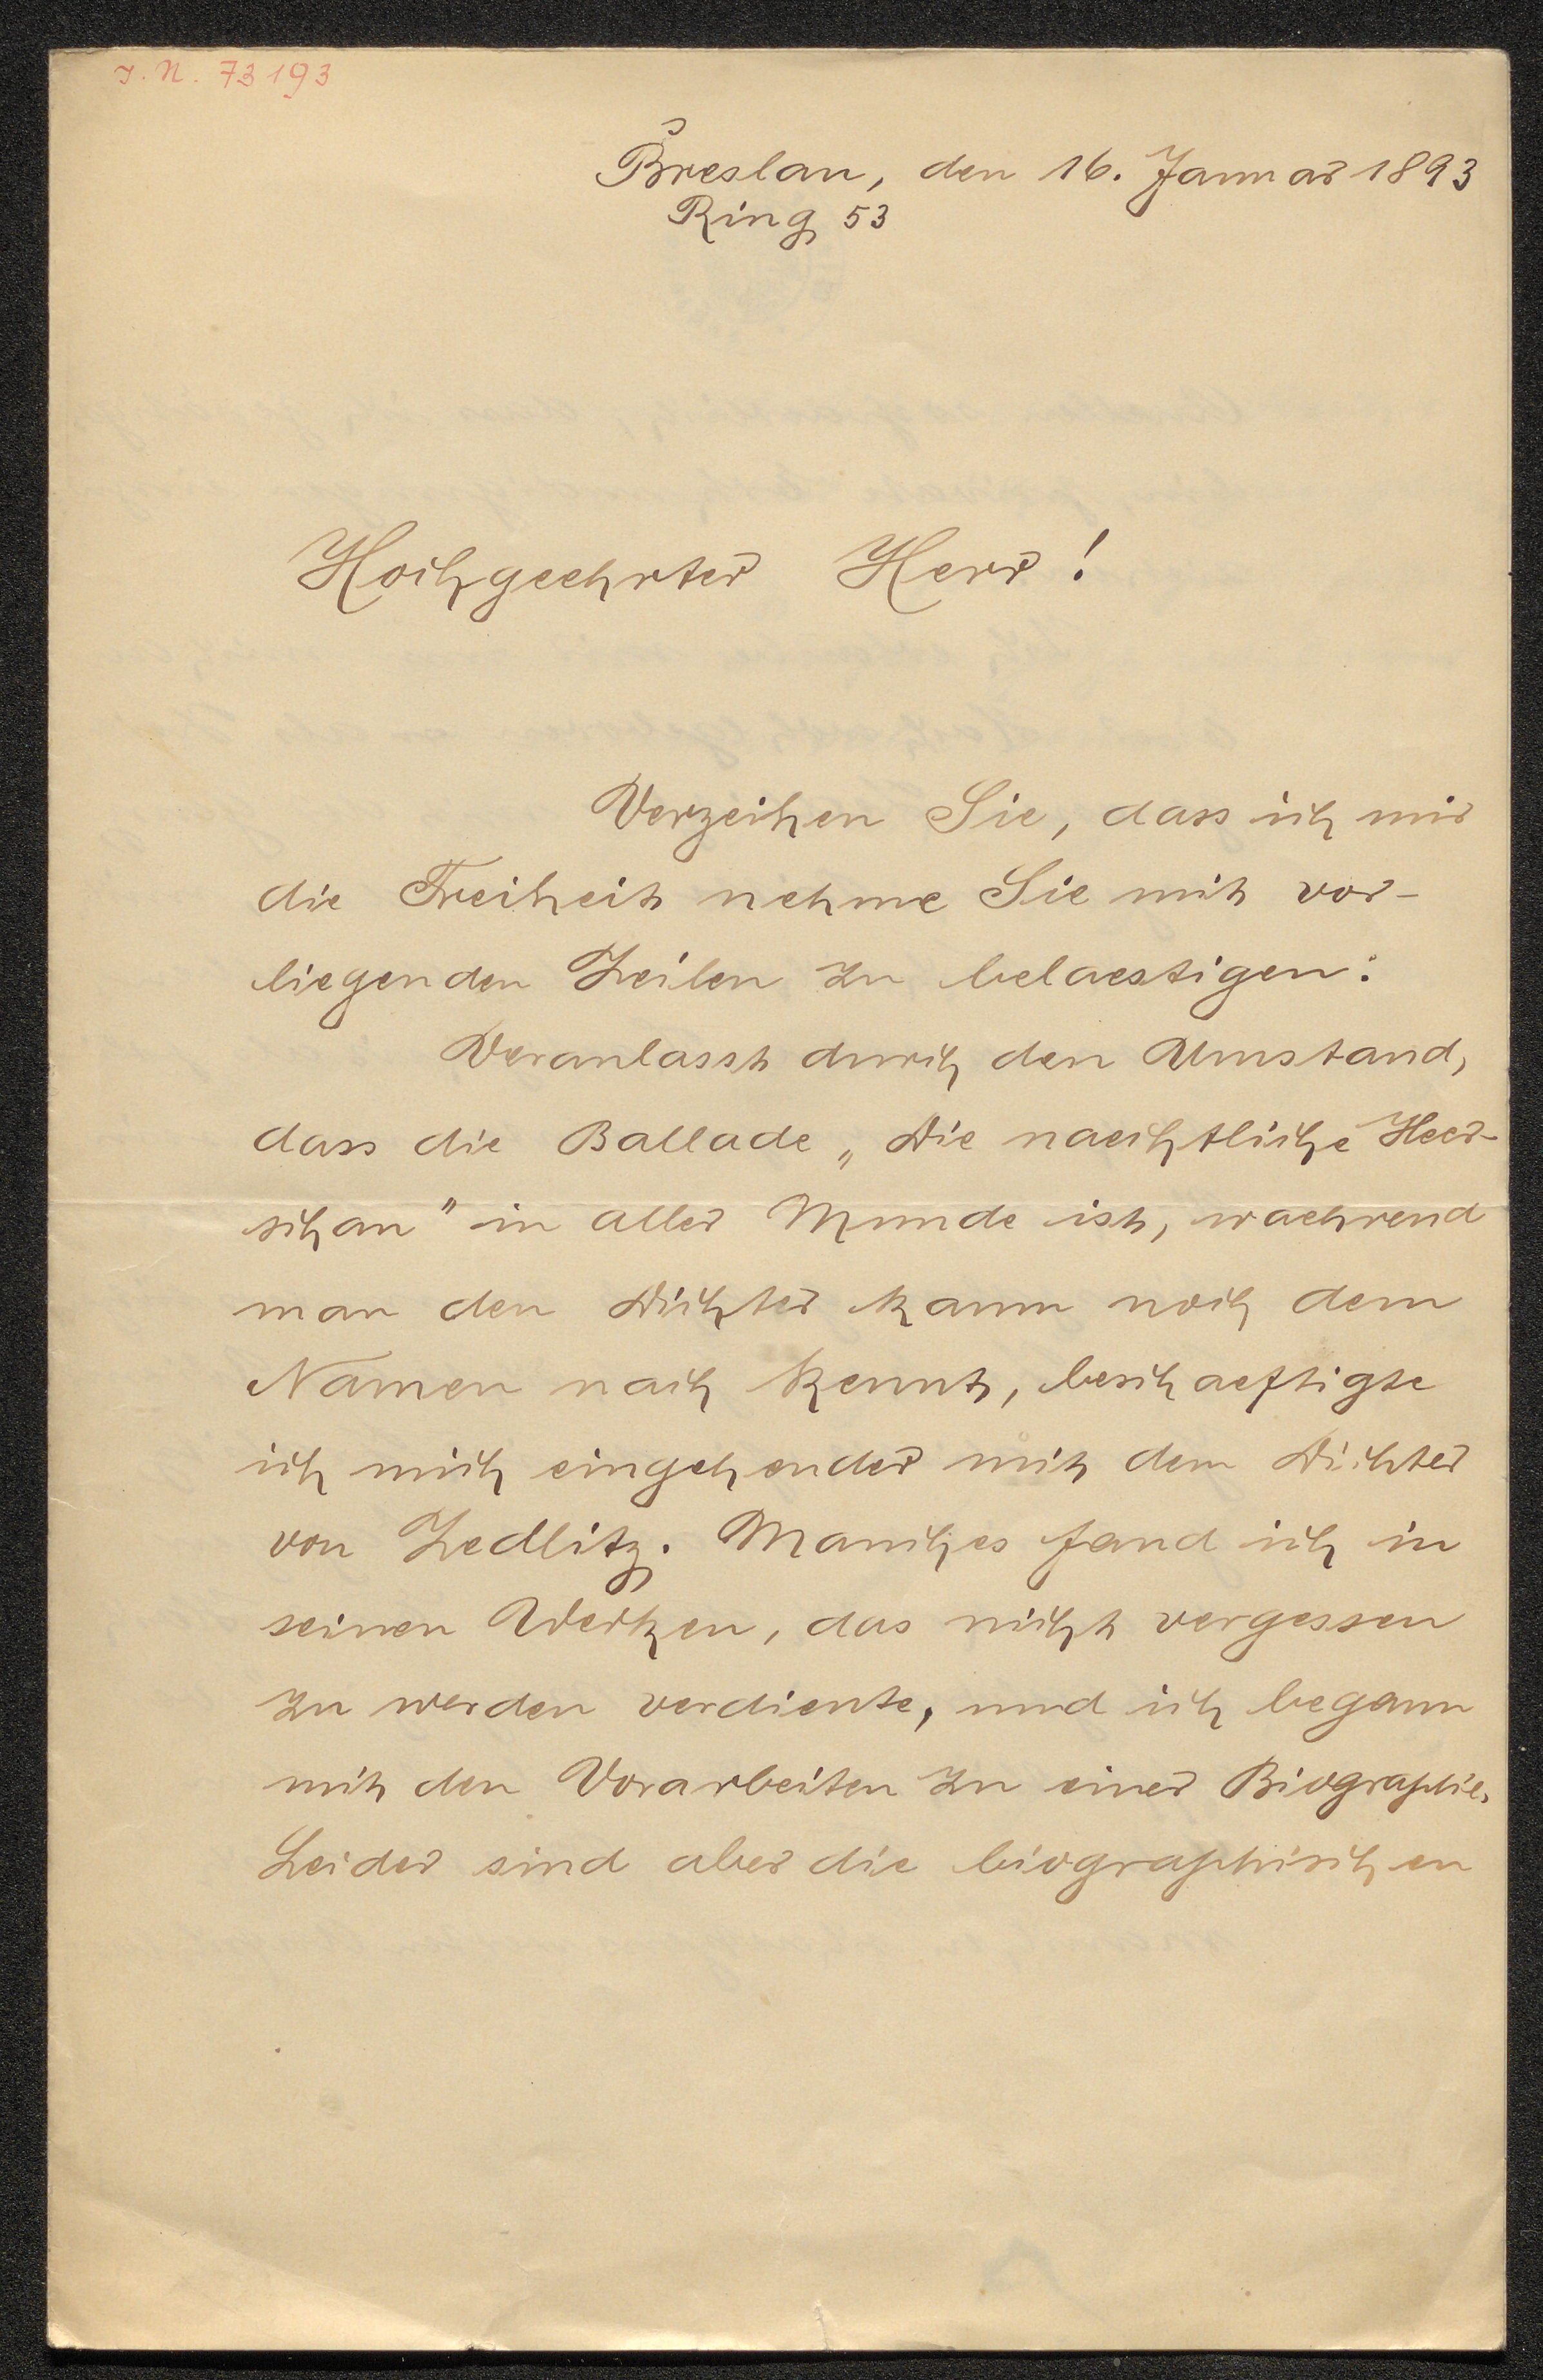 I. N. 73193
Breslau, den 16. Januar 1893
Ring 53
Hochgeehrter Herr!
Verzeihen Sie, dass ich mir
die Freiheit nehme Sie mit vor-
liegenden Zeilen zu belaestigen:
Veranlasst durch den Umstand,
dass die Ballade „Die naechtliche Heer-
schau" in aller Munde ist, waehrend
man den Dichter kaum noch dem
Namen nach kennt, beschaeftigte
ich mich eingehender mit dem Dichter
von Zedlitz. Manches fand ich in
seinen Werken, das nicht vergessen
zu werden verdiente, und ich begann
mit den Vorarbeiten zu einer Biographie.
Leider sind aber die biographischen